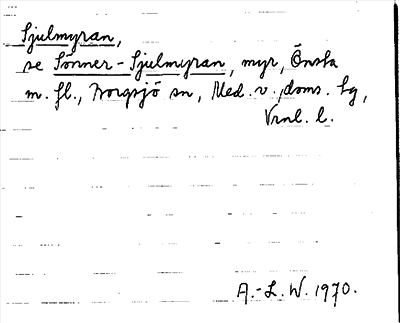 Sjulmyran,
se Sönner-Sjulmyran, myr, Önsta
m. fl., Borgsjö sn, Med. v. doms. hg,
Vrnl. l.
A.-L. W. 1970.